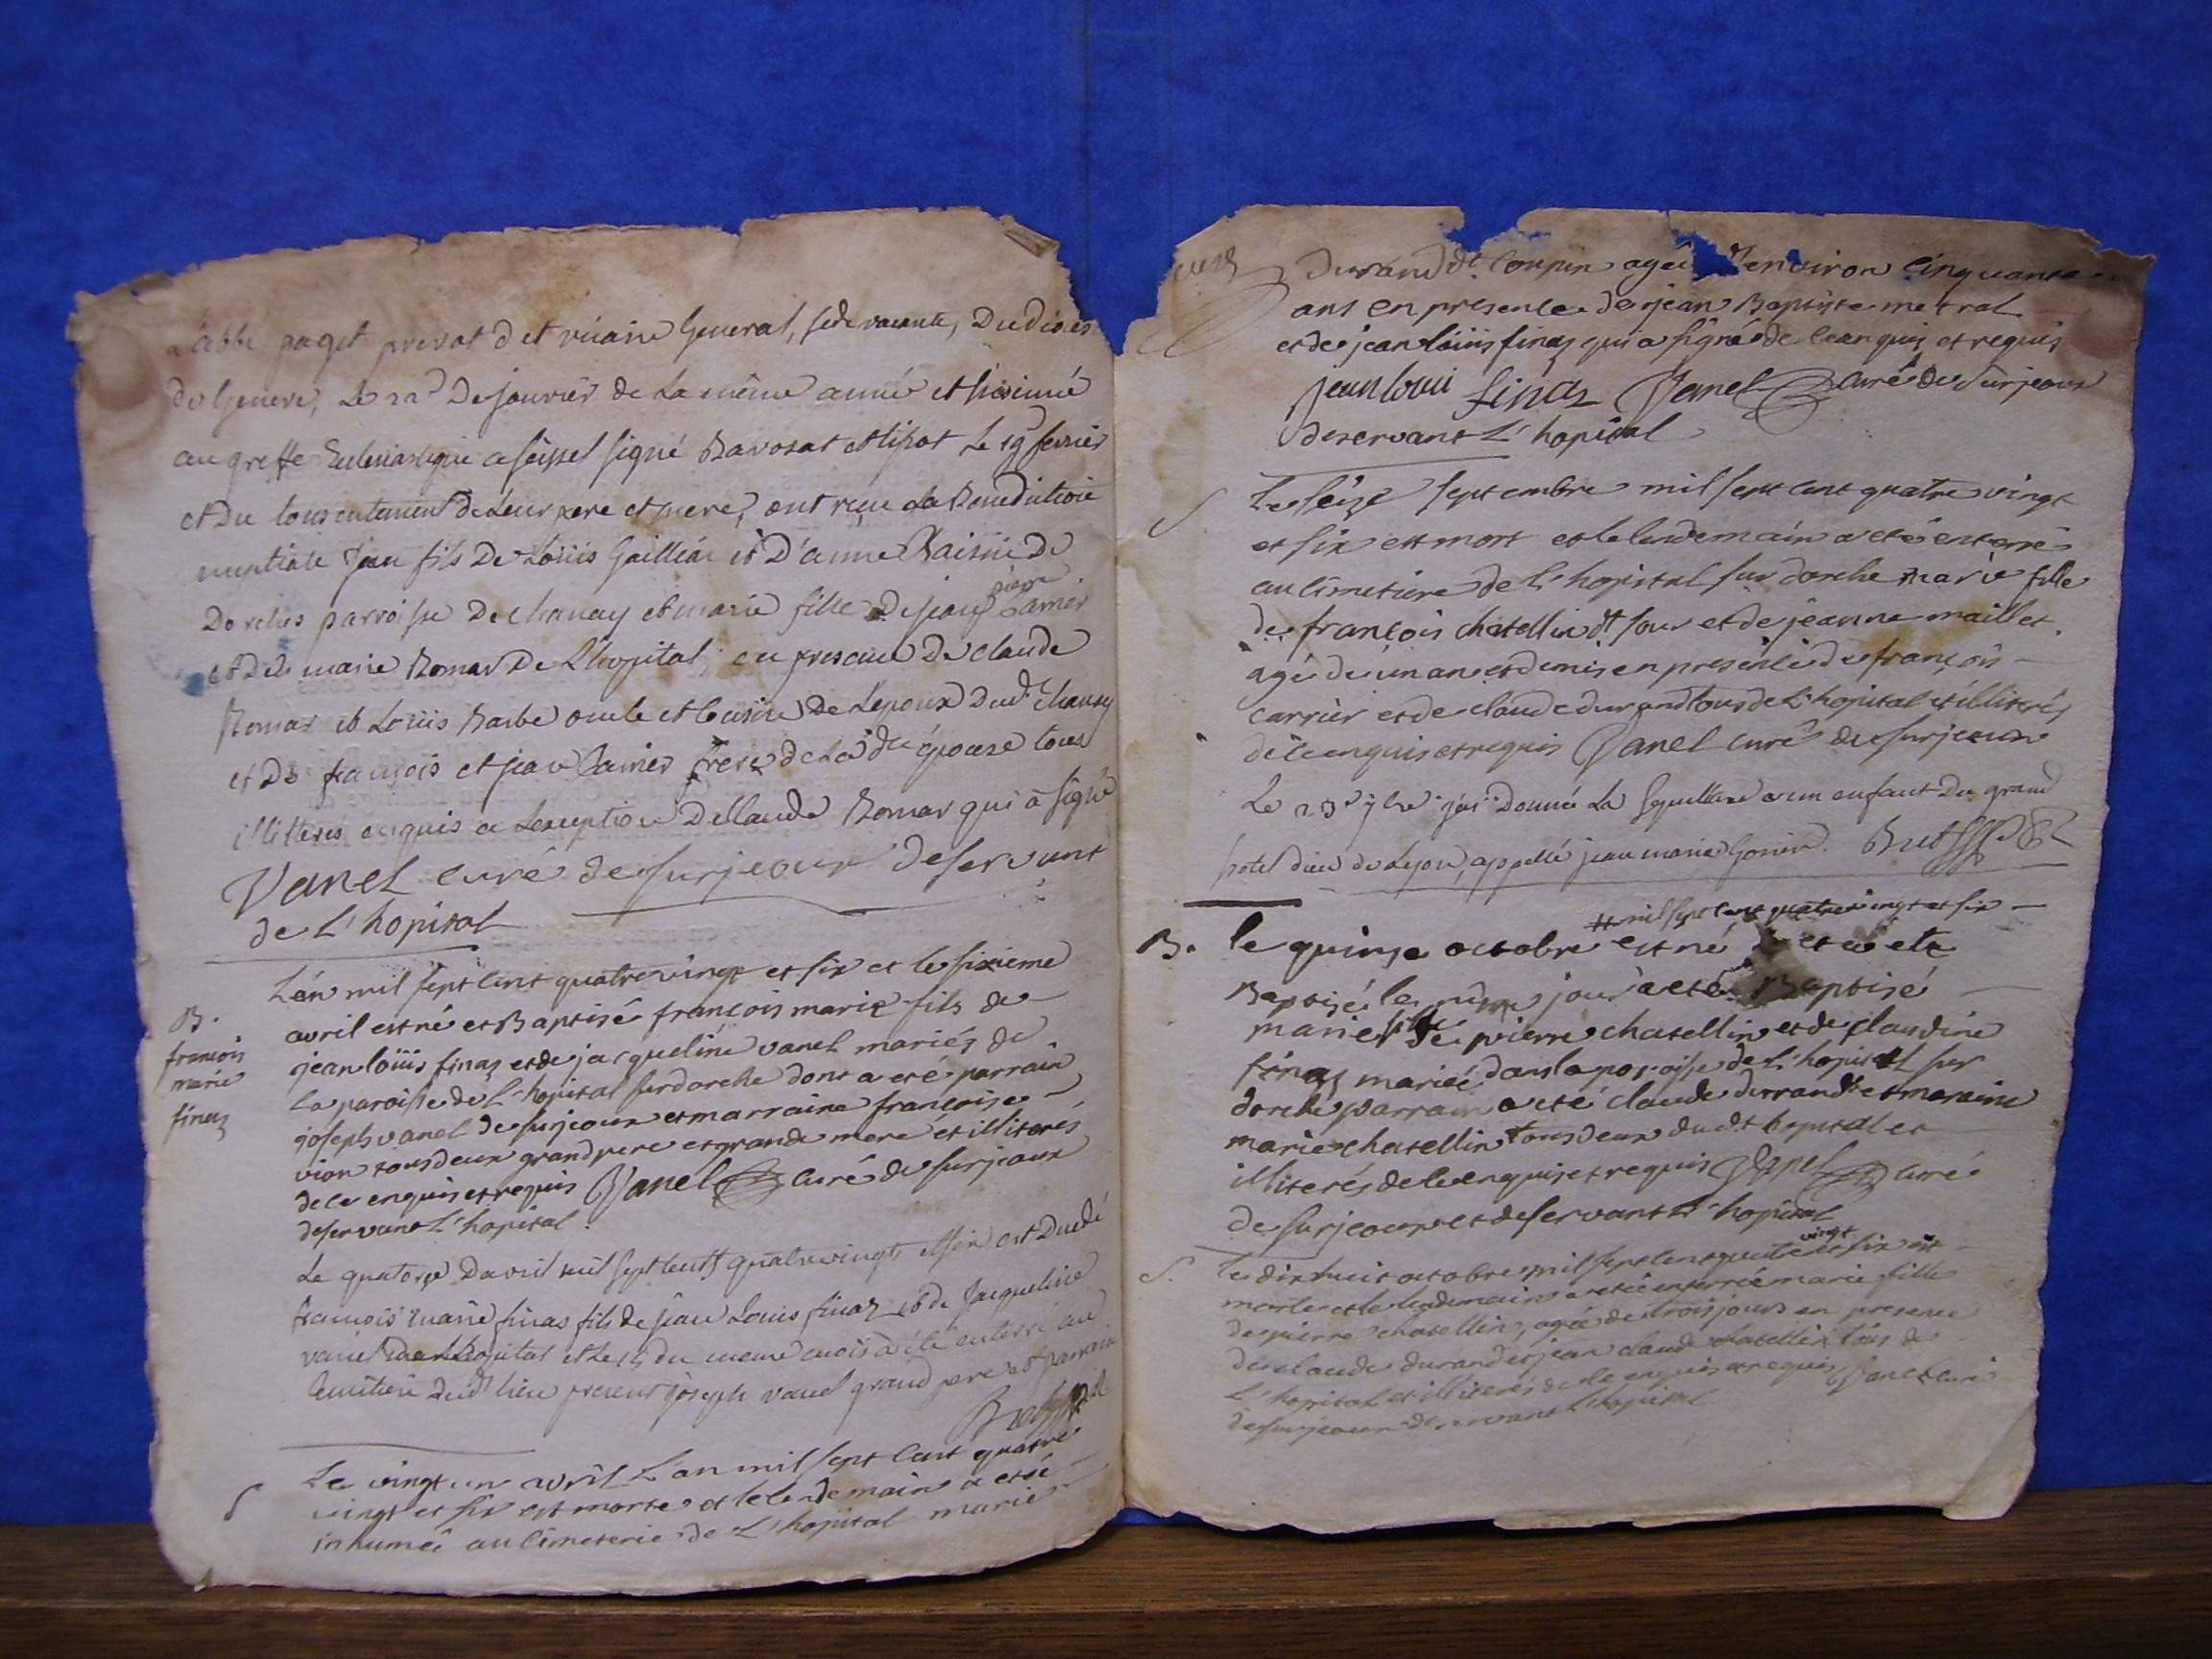 L'abbé paget prevot d et vicaire General, sede vacante, Du dioces
de Geneve, le 22e De janvier de la même année et insinué
au greffe Eclesiastique a seissel signé Bavosat et lisot Le 19 fevrier
et Du consentement de Leur pere et mere, ont reçu La Benediction
nuptiale jean fils De Loüis Gaillar et D'anne
Dorches parroisse De chanay et marie fille De jean
et De marie Romar De L'hopital, en presence De claude
Romar et Loüis Barbe oncle et cousin De L'epoux Dud. Chanay
et De françois et jean frere de La de épouse tous
illitterés enquis a L'exception De Claude Romar qui à signé
Vanel curé de surjeoux deservant
de L'hopital
L'an mil sept cent quatre vingt et six et le sixieme
B.
françois
marie
finaz
avril est né et Baptisé françois marie fils de
jean loüis finaz et de jacqueline vanel mariés de
La paroisse de L'hopital sur dorche dont a eté parrain
joseph vanel de surjeoux et marraine françoise
vion tous deux grand pere et grande mere et illiterés
de ce enquis et requis Vanel curé de surjeoux
deservant L'hopital.
Le quatorze Davril mil sept cents quatre vingts et six est Decedé
françois marie finas fils de jean Louis finaz et de jacqueline
vanel De L'hopital et le 15 du meme mois a été enterré au
cemitiere Dudt lieu present joseph vanel grand pere et parrain
S
Le vingt un avril L'an mil sept cent quatre
vingt et six est morte et le lendemain a eté
inhumée au cimeterie de L'hopital marie
Durand dt coupin agée D'environ cinquante
ans en presence de jean Baptiste metral
et de jean loüis finaz qui a signé de ce enquis et requis
jean loui finaz Vanel curé de surjeoux
deservant L'hopital
S
Le seize septembre mil sept cent quatre vingt
et six est mort et le lendemain a eté enterré
au cimetiere de L'hopital sur dorche marie fille
de françois chatellin dt four et de jeanne maillet
agé de un an et demis en presence de françois
carrier et de claude durand tous de L'hopital et illiterés
de ce enquis et requis Vanel curé de surjeoux
Le 23e 7bre j'ai Donné La sepulture a un enfant Du grand
hotel dieu de Lyon, appellé jean marie Gonin.
# mil sept cent quatre vingt et six
B. le quinze octobre est né et a eté
Baptisé le jour a eté Baptisé
marie fille de pierre chatellin et de claudine
finaz mariés dans la paroisse de L'hopital sur
dorche parrain a eté claude durrand et maraine
marie chatellin tous deux du dt hopital et
illiterés de ce enquis et requis Vanel curé
de surjeoux et deservant L'hopital
vingt
S. Le dix huit octobre mil sept cent quatre et six est
morte et le lendemain a eté enterrée marie fille
de pierre chatellin, agée de trois jours en presence
de claude durand et jean claude chatellin tous de
L'hopital et illiterés de ce enquis et requis Vanel curé
de surjeoux deservant L'hopital